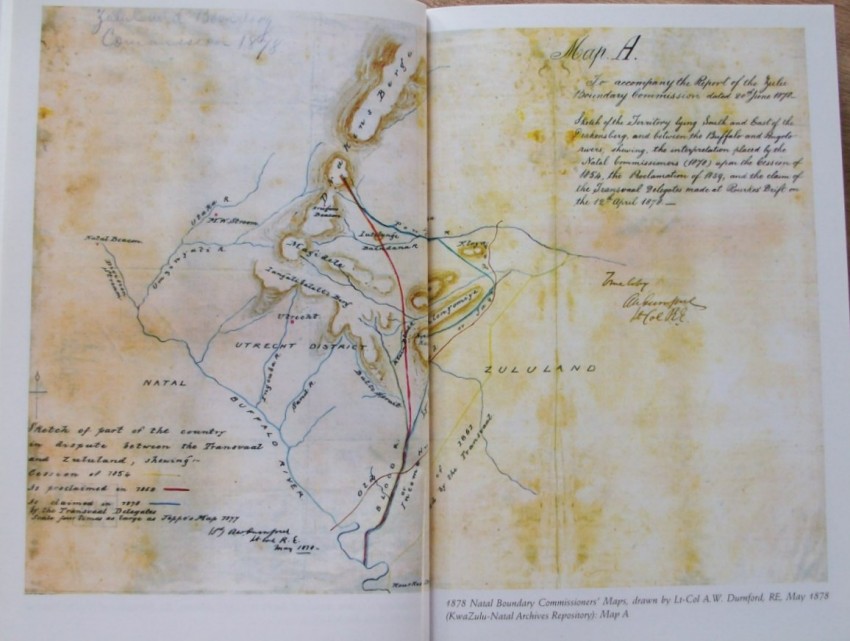 Zululand Boundary
Commission 1878
Map A.
To accompany the Report of the Zulu
Boundary Commission dated 20th June 1878.
Sketch of the Territory lying South and East of the
Drakensberg, and between the Buffalo and Pongolo
rivers, shewing, the interpretation placed by the
Natal Commissioners (1878) upon the Cession of
1854, the Proclamation of 1859, and the claim of
the Transvaal Delegates made at Rourkes Drift on
the 12th April 1878.—
True Copy
AWDurnford
Lt Col R.E.
Utaka R
Natal Beacon
Umzinyati R
Utrecht
UTRECHT DISTRICT
NATAL
BUFFALO RIVER
Sand R
ZULULAND
Old
BLOOD R
of 1863
by the Transvaal
Sketch of part of the country
in dispute between the Transvaal
and Zululand, shewing—
Cession of 1854
As proclaimed in 1859
As claimed in 1878
by the Transvaal Delegates
Scale four times as large as Jeppe's Map 1877
AWDurnford
Lt Col R.E.
May 1878.
1878 Natal Boundary Commissioners' Maps, drawn by Lt-Col A.W. Durnford, RE, May 1878
(KwaZulu-Natal Archives Repository): Map A